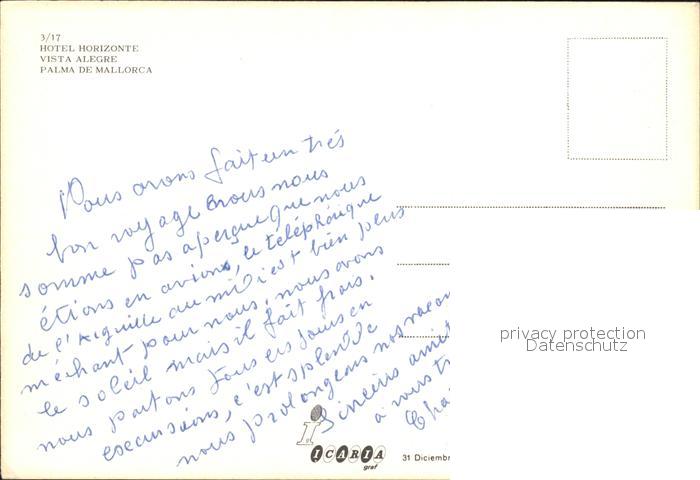 3/17
HOTEL HORIZONTE
VISTA ALEGRE
PALMA DE MALLORCA
Nous avons fait un très
bon voyage nous nous
somme pas aperçue que nous
étions en avions, le téléphérique
de l'Aiguille du midi est bien plus
méchant pour nous, nous avons
le soleil mais il fait frais.
nous partons tous les jours en
excursions, c'est splendide
nous prolongeons nos vacan
Sincères ami
à vous tr
Cha
privacy protection
Datenschutz
ICARIA
graf
31 Diciemb